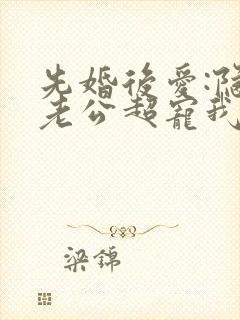 先婚後愛:
老公超寵我
梁錦